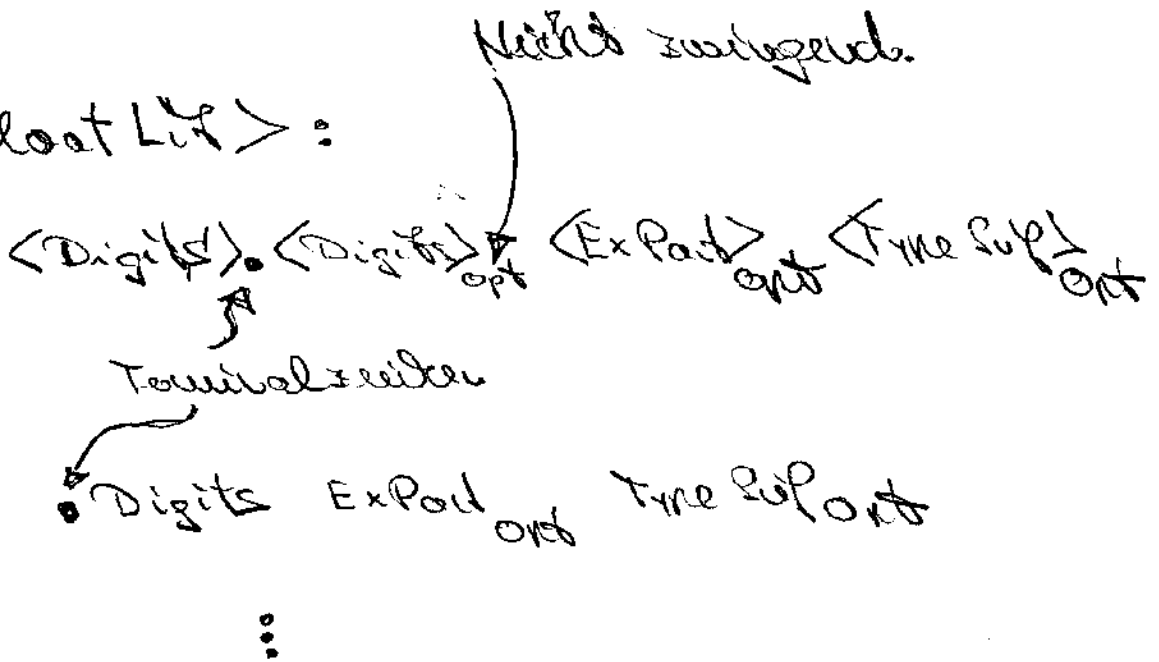 Nicht zwingend.
loat Lit>:
<Digits>.<Digits>opt <ExPart>opt <Type Suf>opt
Terminalzeichen
.Digits ExPart opt Type Suf opt
⋮